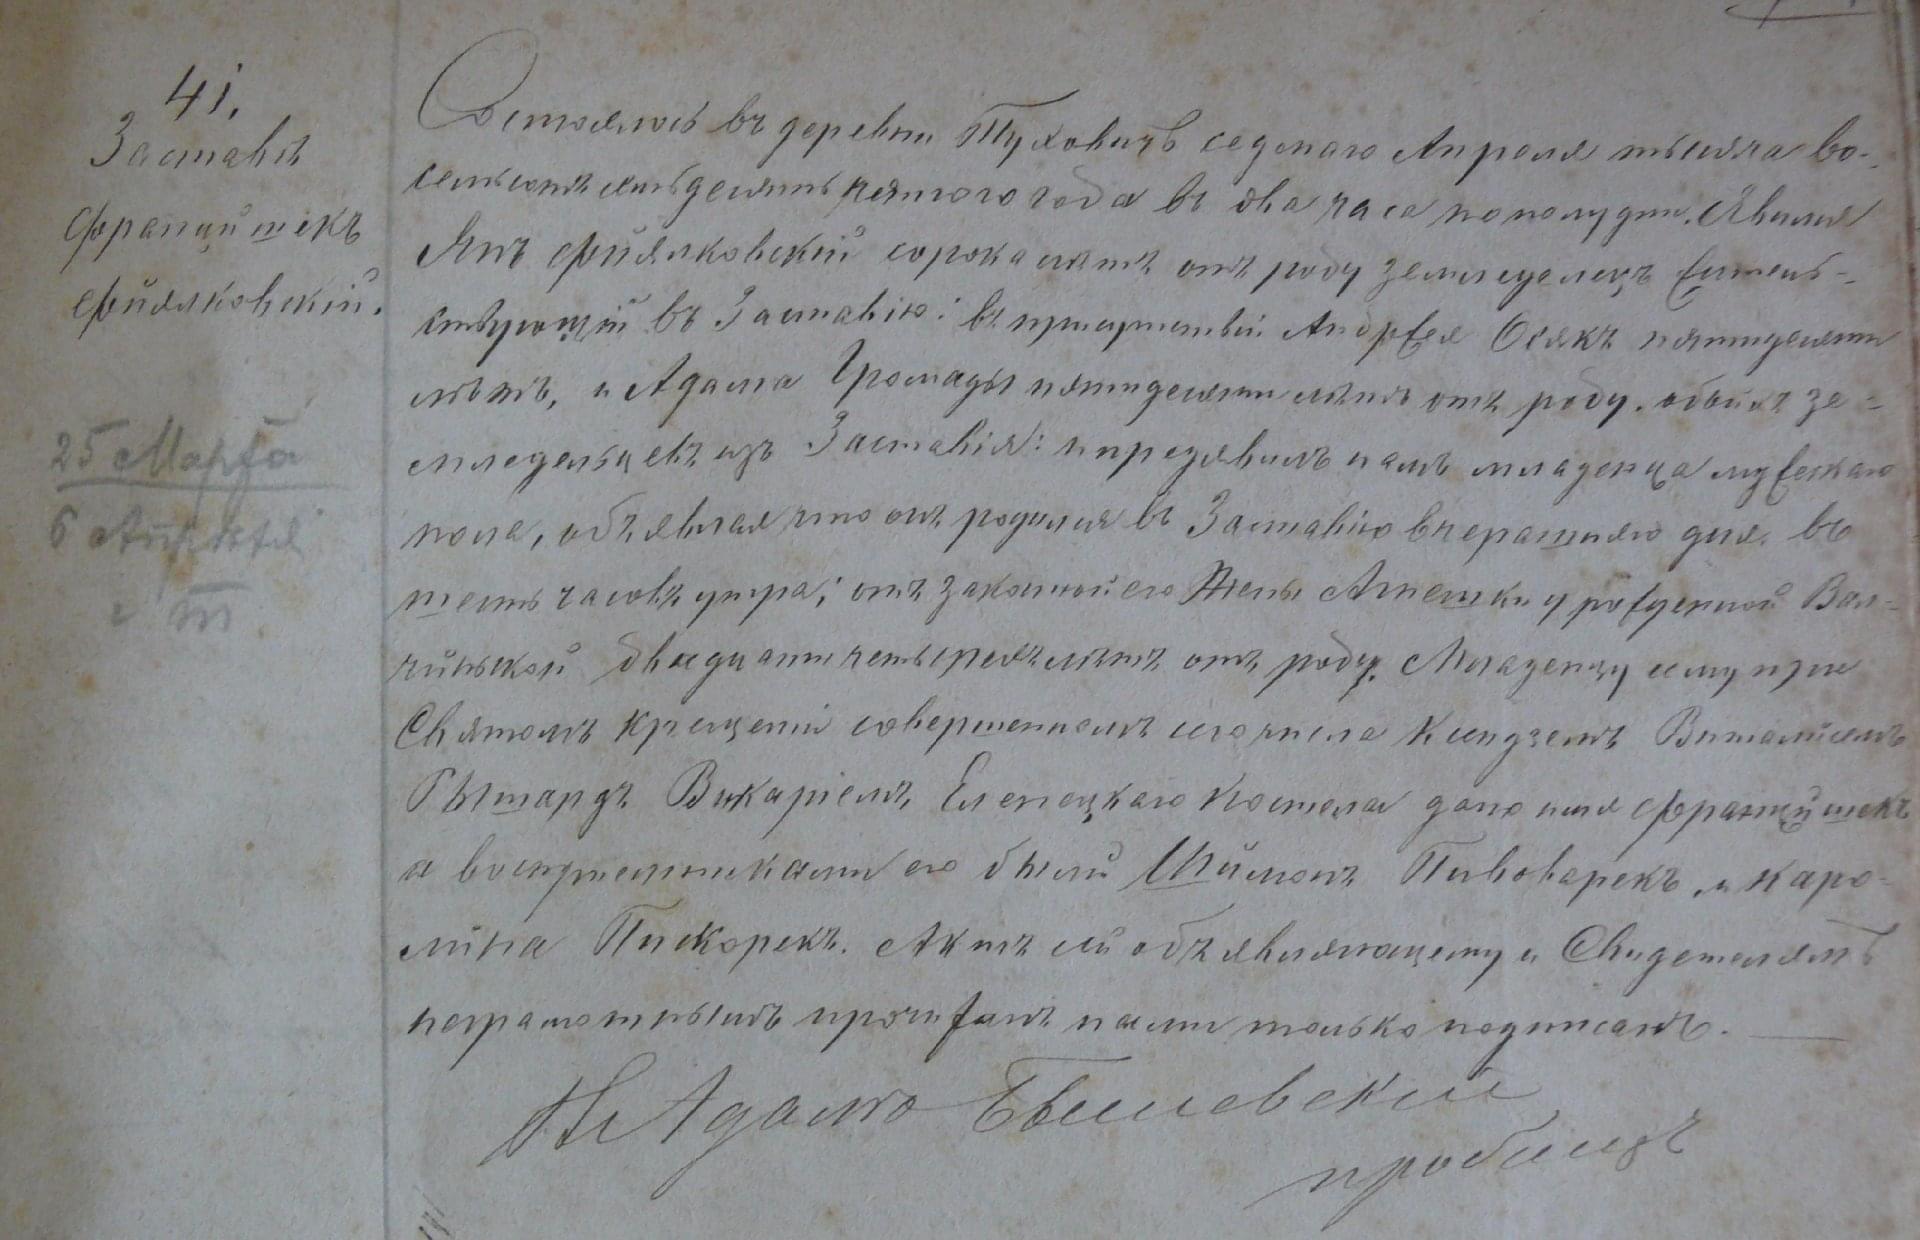 41.
Заставѣ
Францишекъ
Фиялковскій.
25 Марта
6 Апрѣля
Состоялось въ деревни Туховичъ седмаго Апреля тысяча во-
семьсотъ семьдесятъ пятого года въ два часа пополудни. Явился
Янъ Фиялковскій сорока лѣтъ отъ роду земледелецъ житель-
ствующій въ Заставію: въ присутствіи Андржея Осякъ пятидесяти
лѣтъ, и Адама Громады пятидесяти лѣтъ отъ роду. обоихъ зе-
мледельцевъ изъ Заставія: и предявилъ намъ младенца мужескаго
пола, объявляя что онъ родился въ Заставію вчерашняго дня. въ
шесть часовъ утра; отъ законной его Жены Агнешки урожденной Вал-
чиньской двадцати четырехъ лѣтъ отъ роду. Младенцу сему при
Святомъ крещеніи совершенномъ сего числа Ксендземъ Виталисемъ
Гытардъ Викаріемъ, Еленецкаго Костела дано имя Францишекъ
а воспріемниками его были Шимонъ Пивоварекъ, и Каро-
лина Пискорекъ. Актъ сей объявляющему и Свидетелямъ
неграмотнымъ прочитанъ нами только подписанъ.
Кс Адамъ
пробощъ